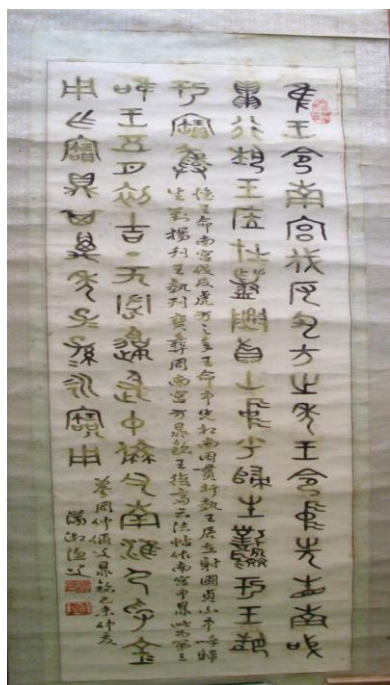 隹王令南宮伐反虎方之年王令中先省南或
貫行埶王应在夔真山中乎歸生鳳于王埶
于寶彝
惟王命南宮伐反虎方之年王命中先相南國貫行埶王居在射圃真山中呼歸
生鳳揚于王埶于寶彝周南宮方鼎銘王復齋云法帖作南宮中鼎此為第三
唯王五月初吉丁亥周邊及中偁父伐南淮夷孚金
用乍寶鼎其萬年子子孫永寶用
摹周仲偁父鼎銘乙未仲夏